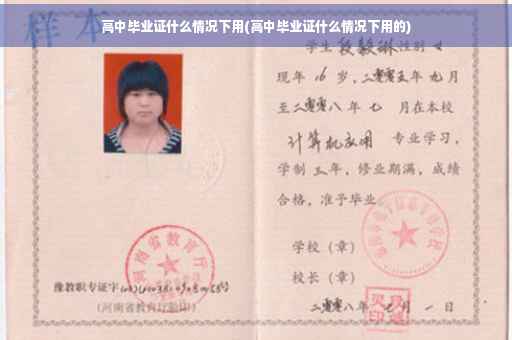 高中毕业证什么情况下用(高中毕业证什么情况下用的)
样本
学生 段毅琳 性别 女
现年 16 岁，二零零五年 九月
至二零零八 年 七 月在本校
计算机应用 专业学习，
学制 三 年，修业期满，成绩
合格，准予毕业
学校（章）
校长（章）
二零零八年 七 月 一 日
河南省教育厅
豫教职专证字
(河南省教育厅验印)